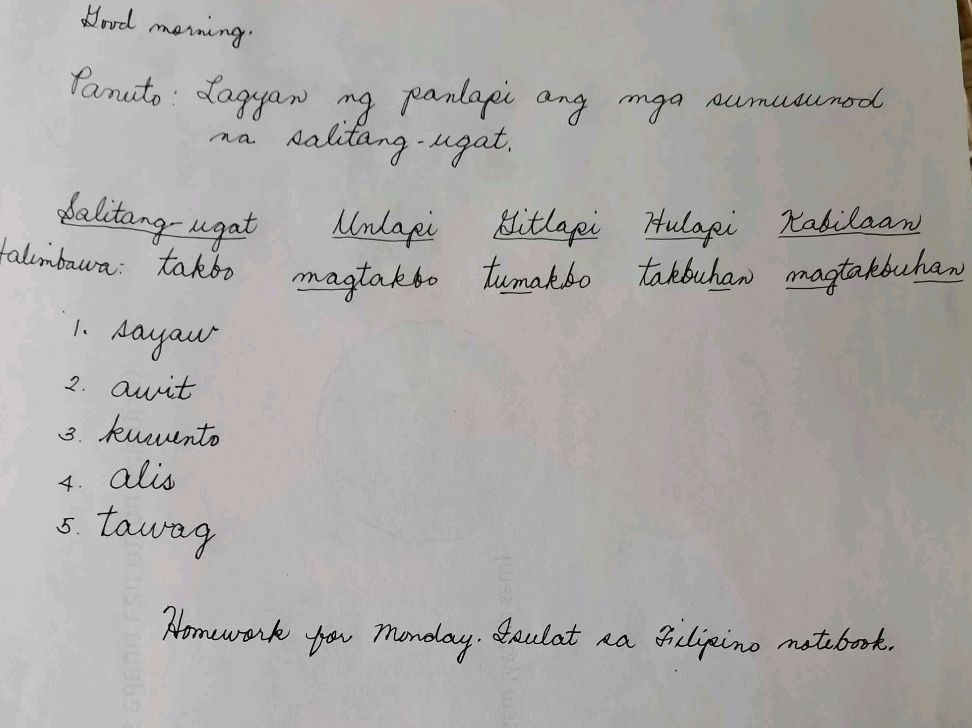 Good morning.
Panuto: Lagyan ng panlapi ang mga sumusunod
na salitang-ugat.
Salitang-ugat Unlapi Gitlapi Hulapi Kabilaan
Halimbawa: takbo magtakbo tumakbo takbuhan magtakbuhan
1. sayaw
2. awit
3. kuwento
4. alis
5. tawag
Homework for Monday. Isulat sa Filipino notebook.